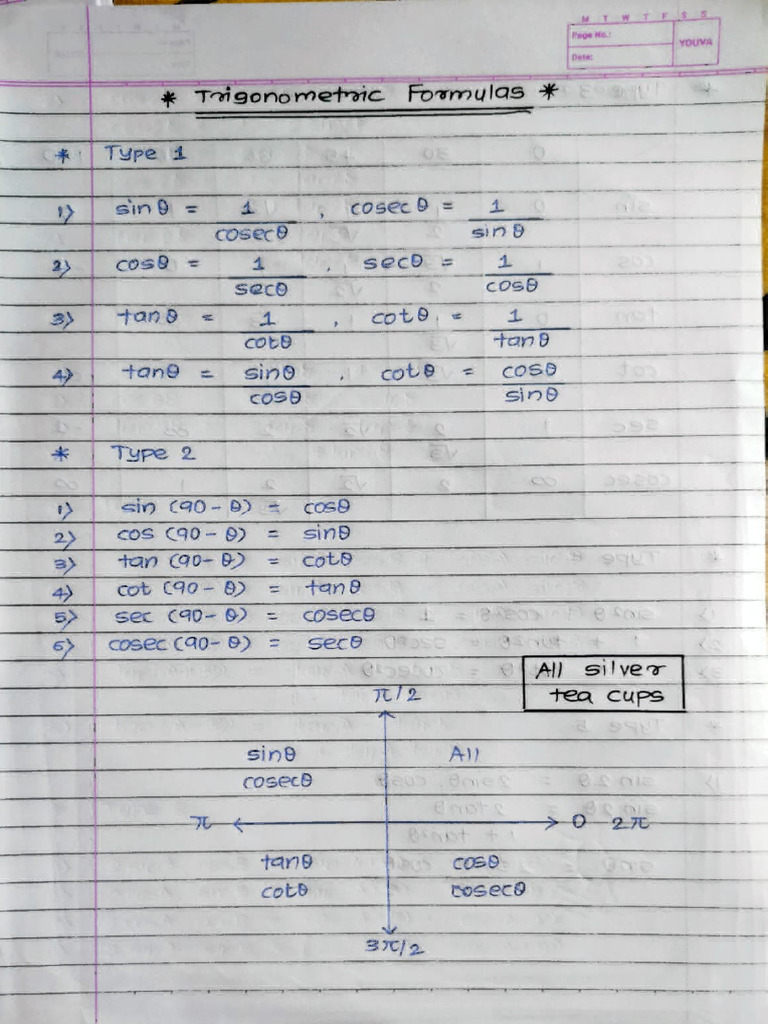 M T W T F S S
Page No.:
Date:
YOUVA
* Trigonometric Formulas *
* Type 1
1) sinθ = 1/cosecθ , cosecθ = 1/sinθ
2) cosθ = 1/secθ , secθ = 1/cosθ
3) tanθ = 1/cotθ , cotθ = 1/tanθ
4) tanθ = sinθ/cosθ , cotθ = cosθ/sinθ
* Type 2
1) sin (90-θ) = cosθ
2) cos (90-θ) = sinθ
3) tan (90-θ) = cotθ
4) cot (90-θ) = tanθ
5) sec (90-θ) = cosecθ
6) cosec (90-θ) = secθ
All silver
tea cups
π/2
sinθ All
cosecθ
π 0 2π
tanθ cosθ
cotθ cosecθ
3π/2